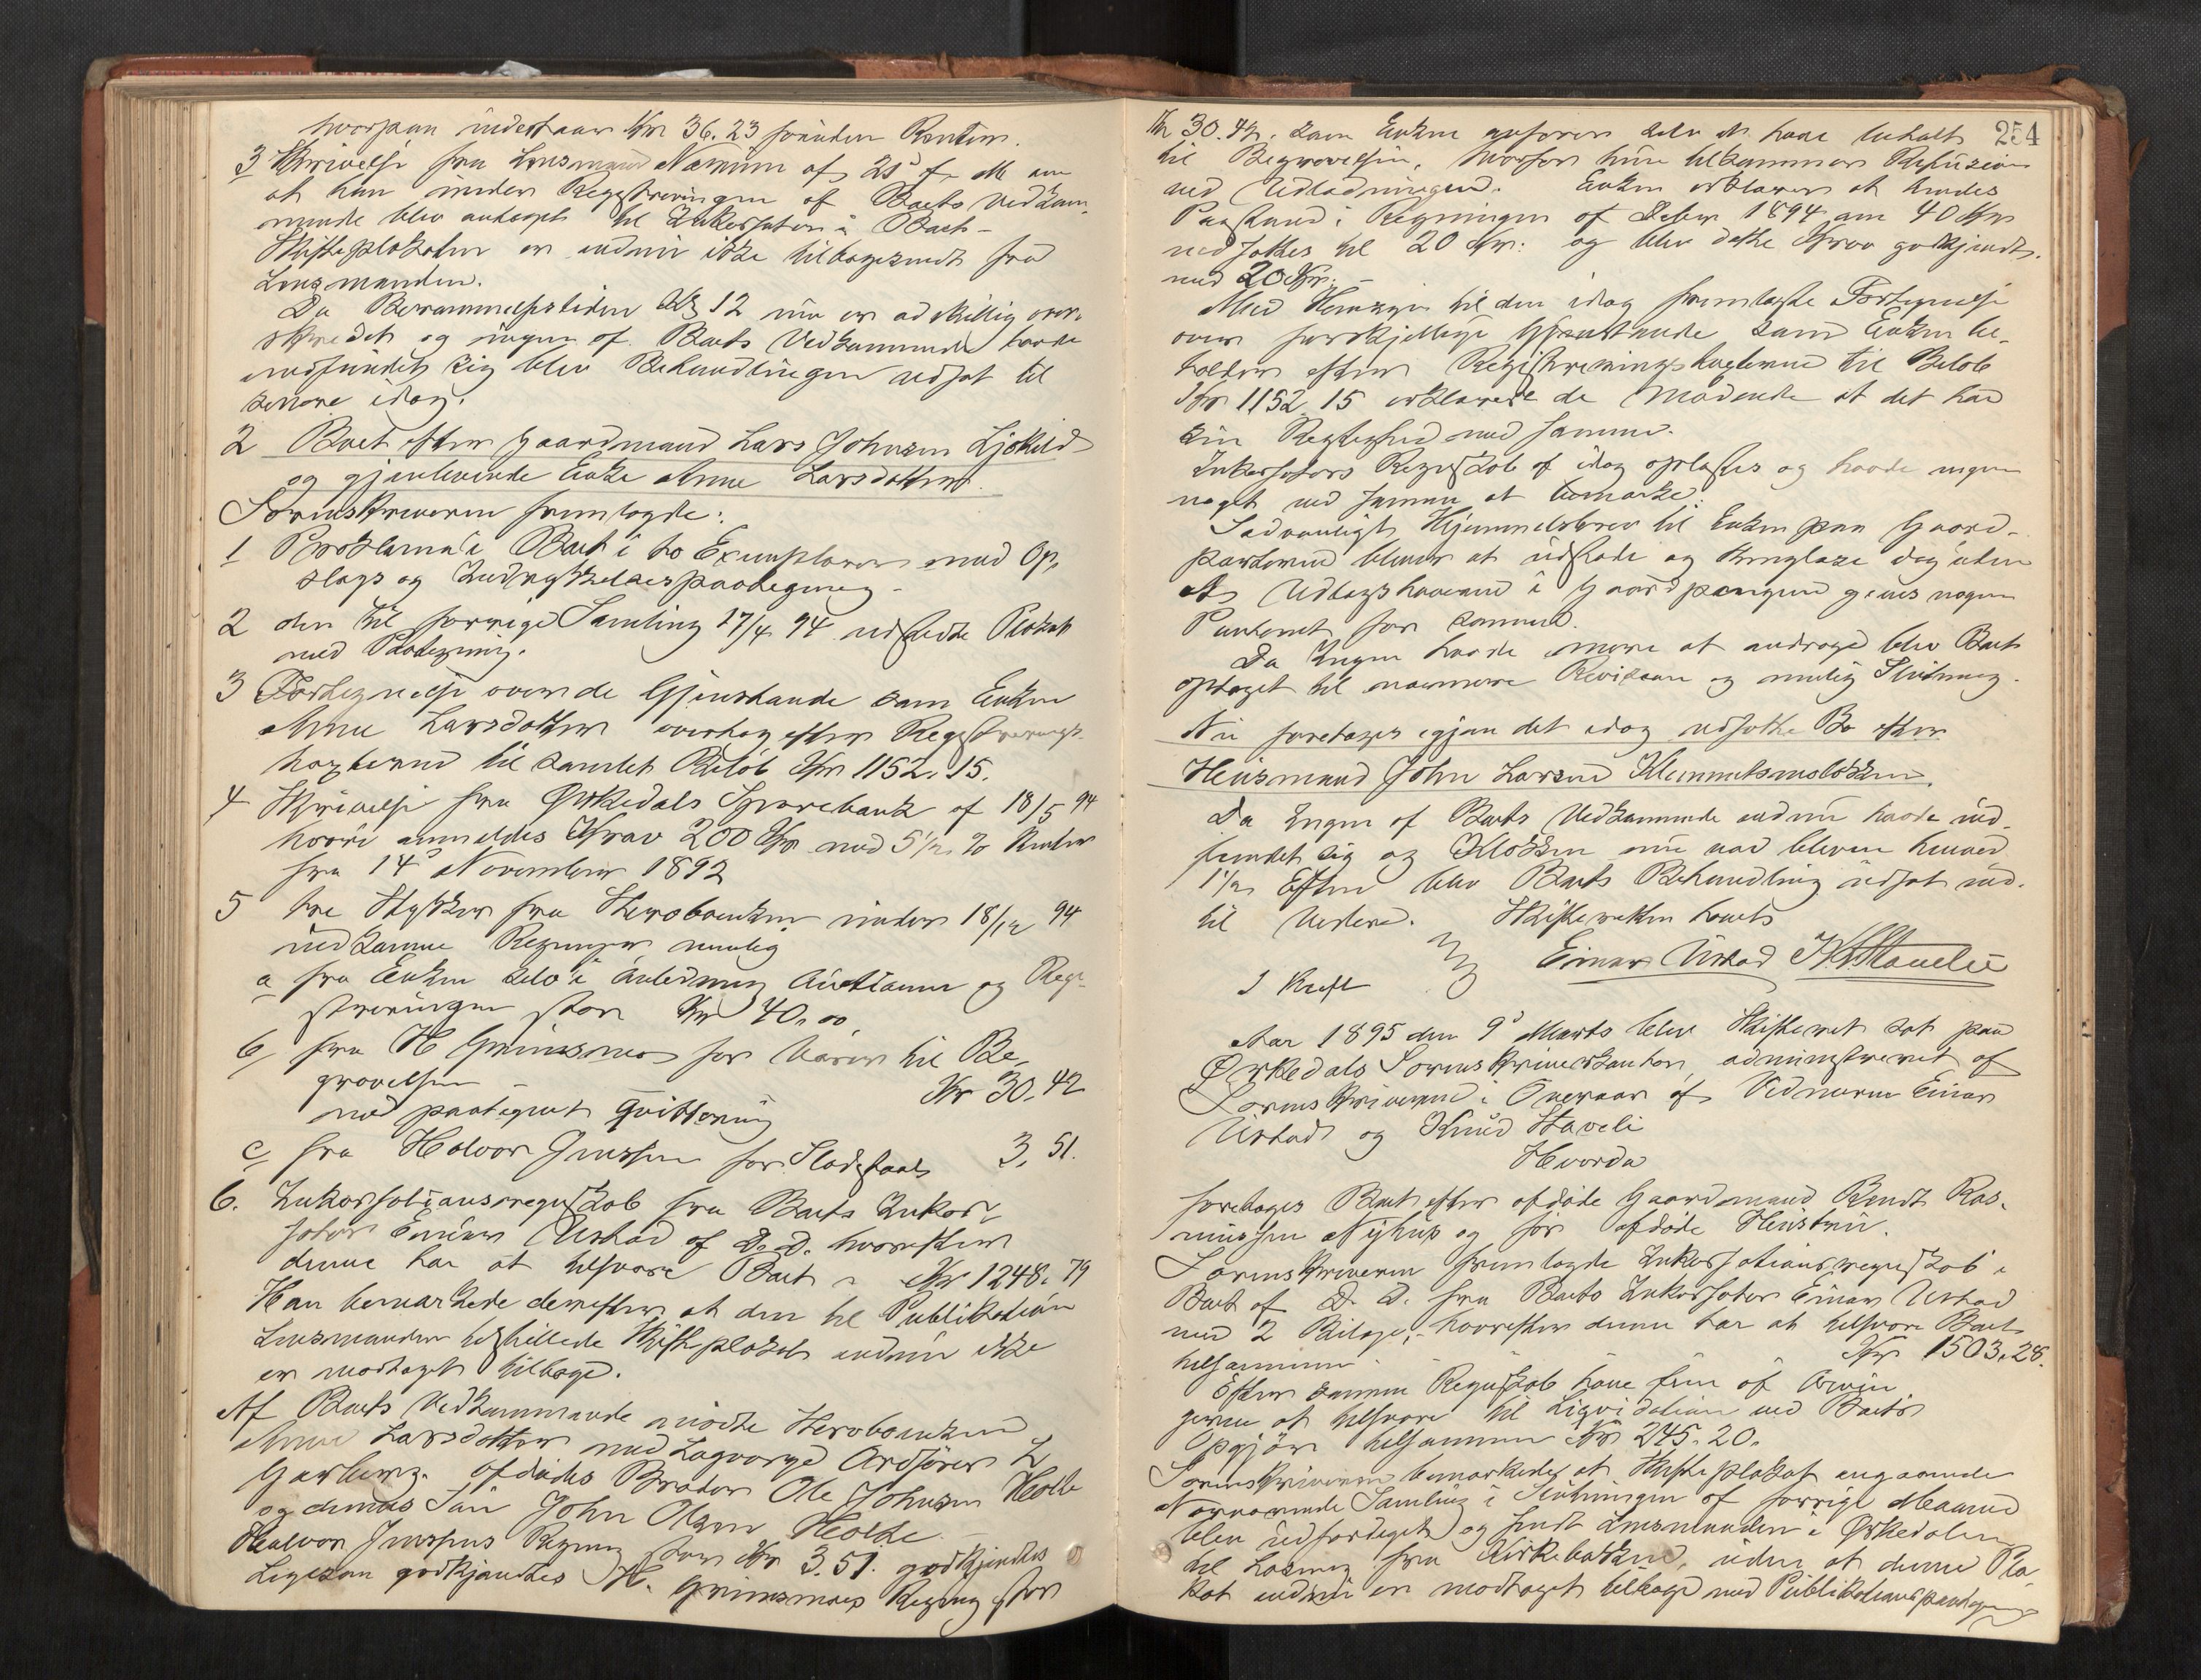 hvorpaa indestaar Kr 36.23 foruden Renter.
3 Skrivelse fra Lensmand Nærum af 25 f. M om
at han under Registreringen af Boets Vedkom-
mende blev antaget til Inkassator i Boet -
Skifteplakaten er endnu ikke tilbagesendt fra
Lensmanden.
Da Berammelsestiden Kl 12 nu er adskillig over-
skredet og ingen af Boets Vedkommende havde
indfundet sig blev Behandlingen udsat til
senere idag.
2 Boet efter Gaardmand Lars Johnsen Ljøkild
og gjenlevende Enke Anne Larsdatter.
Sorenskriveren fremlagde:
1 Proklama i Boet i to Exemplarer med Op-
slags og Indrykkelsespaategning -
2 den til forrige Samling 17/4 94 udstedte Plakat
med Paategning.
3 Fortegnelse over de Gjenstande som Enken
Anne Larsdatter overtog efter Registrerings-
taxterne til samlet Beløb Kr 1152.15.
4 Skrivelse fra Ørkedals Sparebank af 18/5 94
hvori anmeldes Krav 200 Kr med 5 1/2 % Renter
fra 14 November 1892
5 tre Stykker fra Stervboenken under 18/12 94
indkomne Regninger nemlig
a fra Enken selv i Anledning Auktionen og Regi-
streringen stor Kr 40.00
b fra H Grimsmo for Varer til Be-
gravelsen - Kr 30.42
med paategnet Qvittering
c fra Halvor Jenssen for Stadstaal 3.51.
6. Inkassationsregnskab fra Boets Inkas-
sator Einar Urstad af D. D. hvorefter
denne har at tilsvare Boet Kr 1248.79
Han bemærkede derefter at den til Publikation
Lensmanden tilstillede Skifteplakat endnu ikke
er modtaget tilbage.
Af Boets Vedkommende mødte Stervboenken
Anne Larsdatter med Lagværge Ordfører L
Garberg. afdødes Broder Ole Johnsen Holte
og dennes Søn John Olsen Holte.
Halvor Jenssens Regning stor Kr 3.51. godkjendtes
Ligesom godkjendtes H. Grimsmoes Regning stor
254
Kr 30.42. som Enken anfører selv at have betalt
til Begravelsen, hvorfor hun tilkommer Refusion
ved Udlodningen. Enken erklærer at hendes
Paastand i Regningen af Decbr 1894 om 40 Kr
nedsættes til 20 Kr: og blev dette Krav godkjendt
med 20 Kr. -
Med Hensyn til den idag fremlagte Fortegnelse
over forskjellige Gjenstande som Enken be-
holder efter Registreringstaxterne til Beløb
Kr 1152.15 erklærede de Mødende at det har
sin Rigtighed med samme.
Inkassators Regnskab af idag oplæstes og havde ingen
noget ved samme at bemærke.
Sædvanligt Hjemmelsbrev til Enken paa Gaard-
parterne bliver at udstede og thinglæse dog uden
at Udlægshaverne i Gaardpengene gives nogen
Panteret for samme.
Da Ingen havde mere at andrage blev Boet
optaget til nærmere Revision og mulig Slutning.
Nu foretoges igjen det idag udsatte Bo efter
Husmand John Larsen Klemmetsmoløkken.
Da Ingen af Boets Vedkommende endnu havde ind-
fundet sig og Klokken nu var bleven henved
1 1/2 Efterm blev Boets Behandling udsat ind-
til videre. Skifteretten hævet
I Kraft Einar Urstad K Staveli
Aar 1895 den 9 Marts blev Skifteret sat paa
Ørkedals Sorenskriverkontor, administreret af
Sorenskriveren i Overvær af Vidnerne Einar
Urstad og Knud Staveli
Hvorda
foretoges Boet efter afdøde Gaardmand Bendt Ras-
mussen Nyhus og før afdøde Hustru.
Sorenskriveren fremlagde Inkassationsregnskab i
Boet af D. D. fra Boets Inkassator Einar Urstad
med 2 Bilage, - hvorefter denne har at tilsvare Boet
tilsammen Kr 1503.28.
Efter samme Regnskab have fem af Arvin-
gerne at tilsvare til Liqvidation ved Boets
Opgjør tilsammen Kr 245.20.
Sorenskriveren bemærkede, at Skifteplakat angaaende
Nærværende Samling i Slutningen af forrige Maaned
blev udfærdiget og sendt Lensmanden i Ørkedalen
til Læsning fra Kirkebakken, uden at denne Pla-
kat endnu er modtaget tilbage med Publikationspaategning